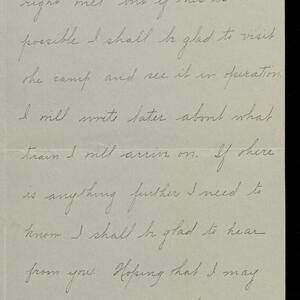 right out but if this is
possible I shall be glad to visit
the camp and see it in operation
I will write later about what
train I will arrive on. If there
is anything further I need to
know I shall be glad to hear
from you. Hoping that I may